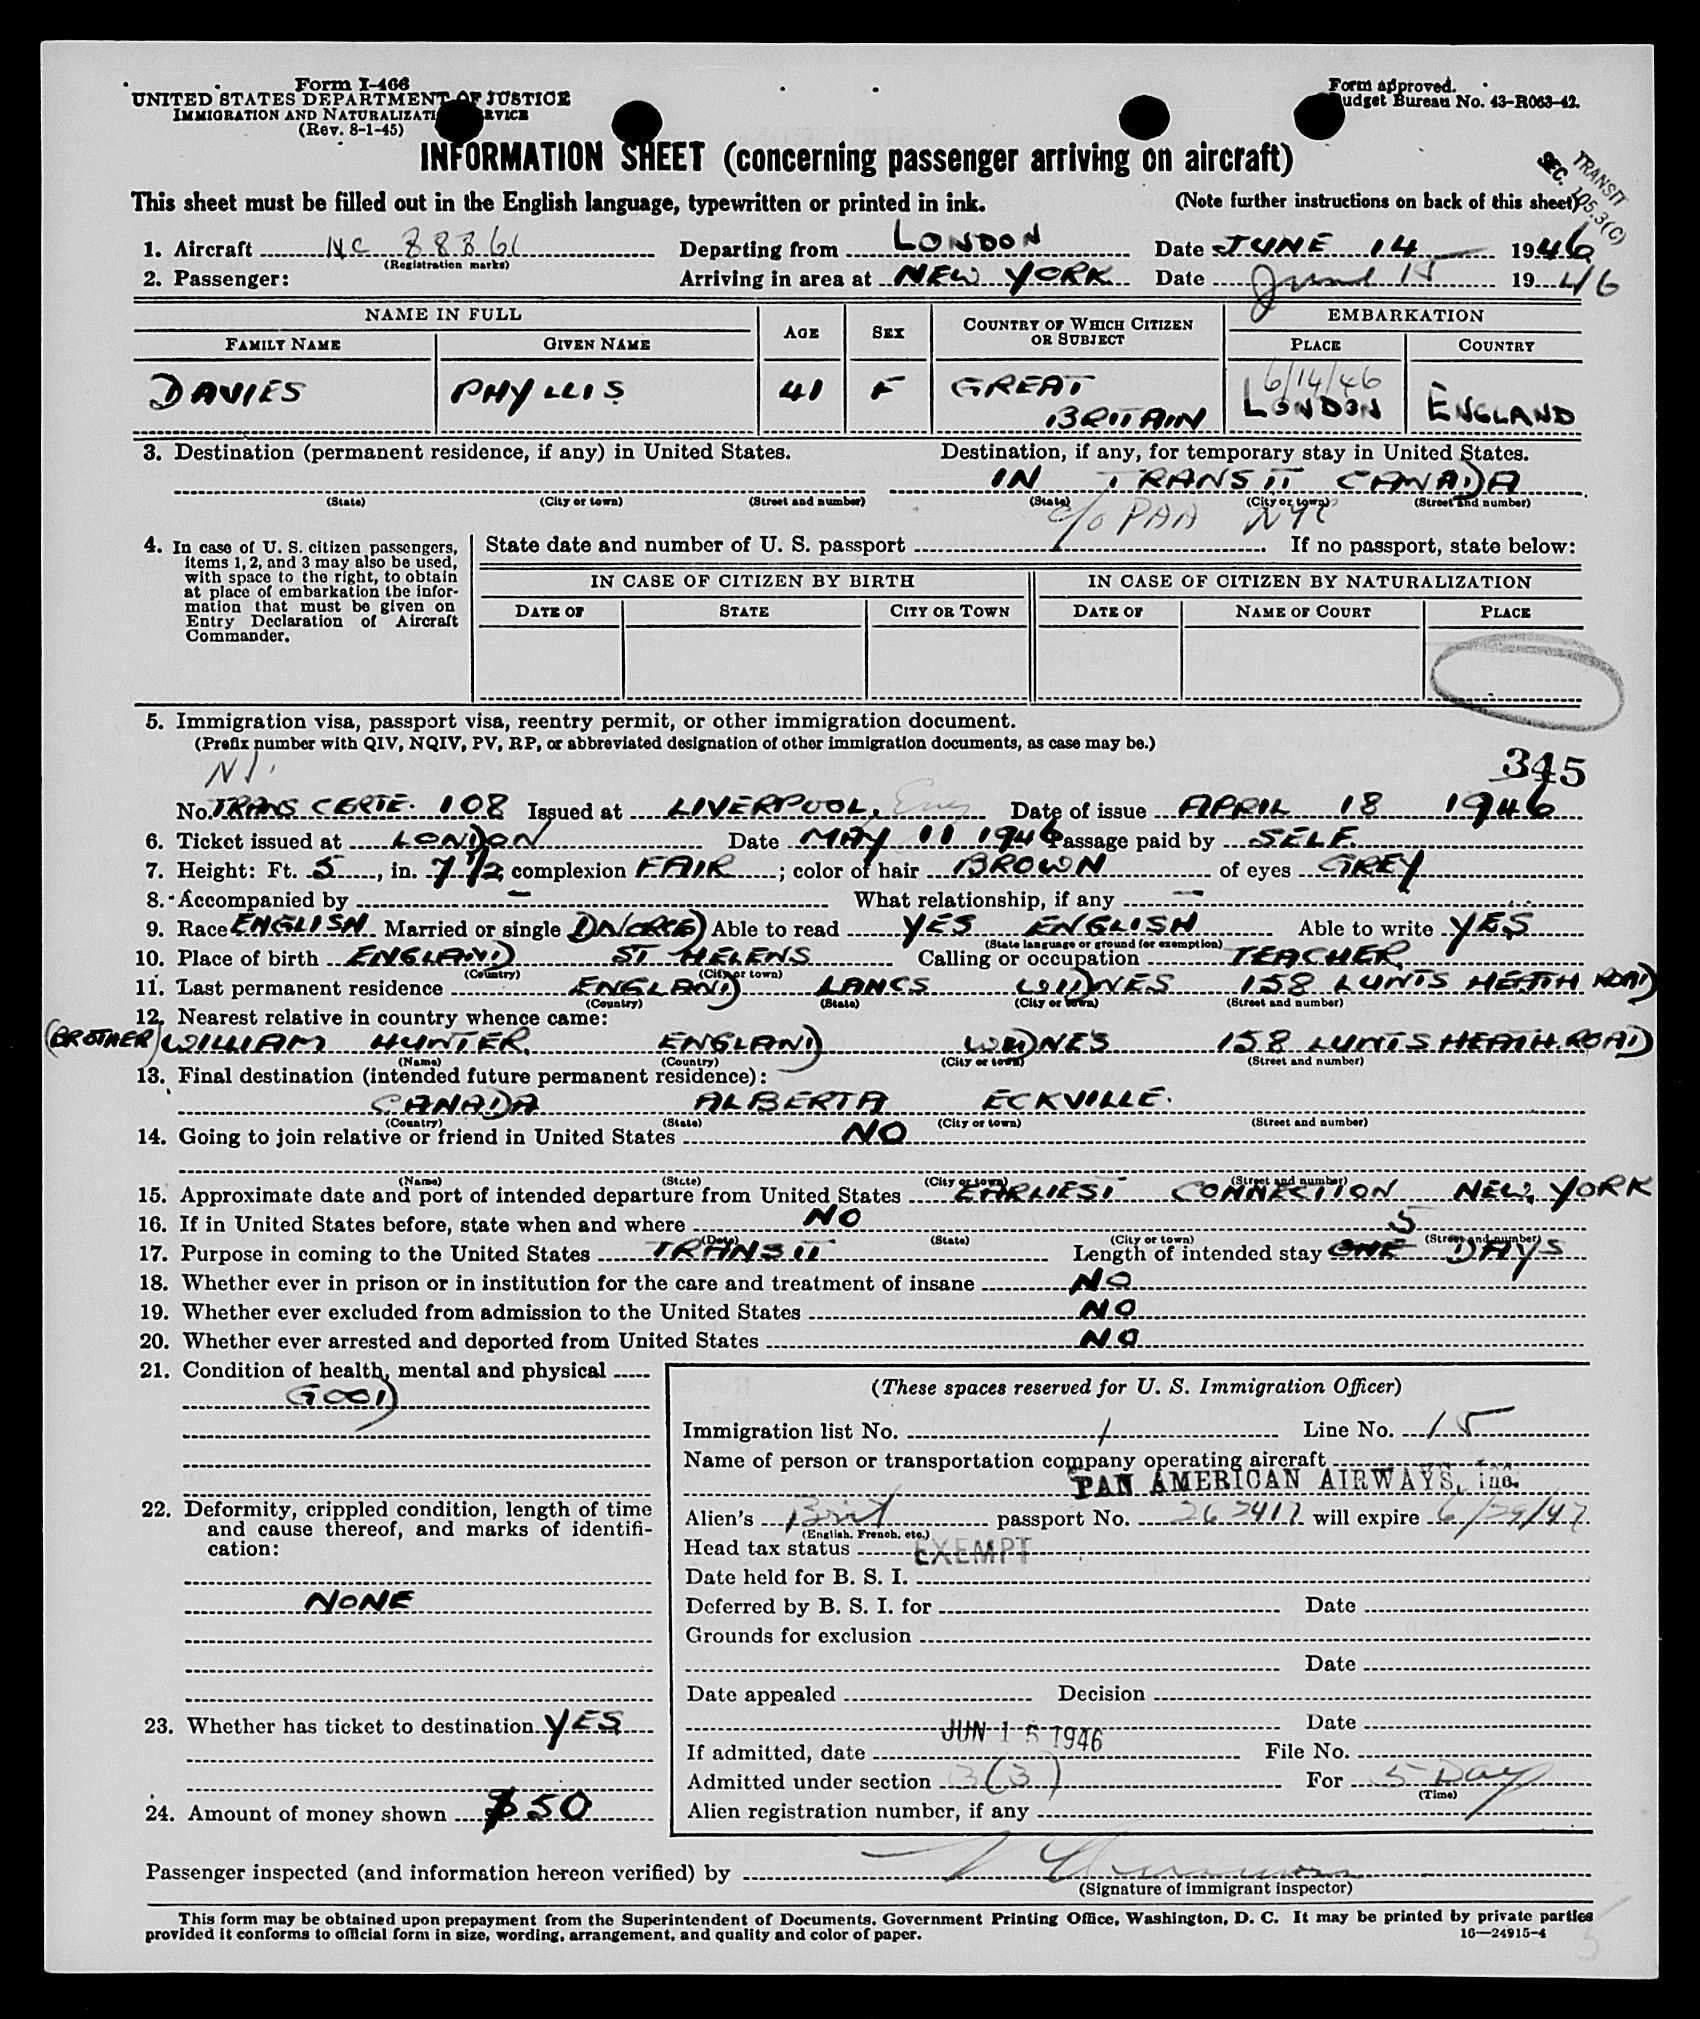 Form I-466
UNITED STATES DEPARTMENT OF JUSTICE
IMMIGRATION AND NATURALIZATION SERVICE
(Rev. 8-1-45)
Form approved.
Budget Bureau No. 43-R063-42.
INFORMATION SHEET (concerning passenger arriving on aircraft)
TRANSIT
SEC. 105.3(C)
This sheet must be filled out in the English language, typewritten or printed in ink. (Note further instructions on back of this sheet)
1. Aircraft NC 88861 Departing from LONDON Date JUNE 14 1946
(Registration marks)
2. Passenger: Arriving in area at NEW YORK Date June 15 1946
NAME IN FULL AGE SEX COUNTRY OF WHICH CITIZEN OR SUBJECT EMBARKATION
FAMILY NAME GIVEN NAME PLACE COUNTRY
6/14/46
DAVIES PHYLLIS 41 F GREAT BRITAIN LONDON ENGLAND
3. Destination (permanent residence, if any) in United States. Destination, if any, for temporary stay in United States.
IN TRANSIT CANADA
(State) (City or town) (Street and number) (State) (City or town) (Street and number)
c/o PAA NYC
4. In case of U. S. citizen passengers, items 1, 2, and 3 may also be used, with space to the right, to obtain at place of embarkation the information that must be given on Entry Declaration of Aircraft Commander.
State date and number of U. S. passport If no passport, state below:
IN CASE OF CITIZEN BY BIRTH IN CASE OF CITIZEN BY NATURALIZATION
DATE OF STATE CITY OR TOWN DATE OF NAME OF COURT PLACE
5. Immigration visa, passport visa, reentry permit, or other immigration document.
(Prefix number with QIV, NQIV, PV, RP, or abbreviated designation of other immigration documents, as case may be.)
345
No. TRANS CERTE. 108 Issued at LIVERPOOL, Eng Date of issue APRIL 18 1946
6. Ticket issued at LONDON Date MAY 11 1946 Passage paid by SELF.
7. Height: Ft. 5, in. 7 1/2 complexion FAIR; color of hair BROWN of eyes GREY
8. Accompanied by — What relationship, if any —
9. Race ENGLISH Married or single DIVORCED Able to read YES ENGLISH Able to write YES
(State language or ground for exemption)
10. Place of birth ENGLAND ST HELENS Calling or occupation TEACHER
(Country) (City or town)
11. Last permanent residence ENGLAND LANCS WIDNES 158 LUNTS HEATH ROAD
(Country) (State) (City or town) (Street and number)
12. Nearest relative in country whence came:
(BROTHER) WILLIAM HUNTER ENGLAND WIDNES 158 LUNTS HEATH ROAD
(Name) (Country) (City or town) (Street and number)
13. Final destination (intended future permanent residence):
CANADA ALBERTA ECKVILLE.
(Country) (State) (City or town) (Street and number)
14. Going to join relative or friend in United States NO
(Name) (State) (City or town) (Street and number)
15. Approximate date and port of intended departure from United States EARLIEST CONNECTION NEW YORK
16. If in United States before, state when and where NO
(Date) (State) (City or town) (Street and number)
17. Purpose in coming to the United States TRANSIT Length of intended stay ONE 5 DAYS
18. Whether ever in prison or in institution for the care and treatment of insane NO
19. Whether ever excluded from admission to the United States NO
20. Whether ever arrested and deported from United States NO
21. Condition of health, mental and physical
GOOD
22. Deformity, crippled condition, length of time and cause thereof, and marks of identification:
NONE
23. Whether has ticket to destination YES
24. Amount of money shown $50
(These spaces reserved for U. S. Immigration Officer)
Immigration list No. 1 Line No. 15
Name of person or transportation company operating aircraft
PAN AMERICAN AIRWAYS, Inc.
Alien's Brit passport No. 262417 will expire 6/29/47
(English, French, etc.)
Head tax status EXEMPT
Date held for B. S. I.
Deferred by B. S. I. for Date
Grounds for exclusion
Date
Date appealed Decision
Date
If admitted, date JUN 15 1946 File No.
Admitted under section 3(3) For 5 Day
(Time)
Alien registration number, if any
Passenger inspected (and information hereon verified) by
(Signature of immigrant inspector)
This form may be obtained upon prepayment from the Superintendent of Documents, Government Printing Office, Washington, D. C. It may be printed by private parties
provided it conforms to official form in size, wording, arrangement, and quality and color of paper. 16—24915-4